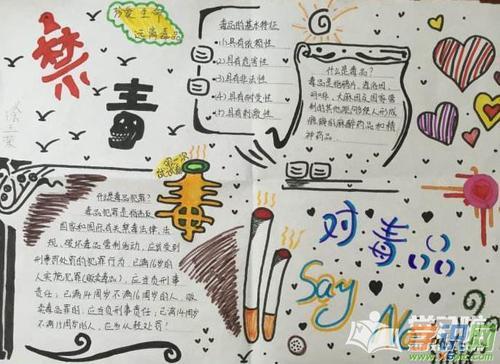 珍爱生命
远离毒品
禁
毒
毒品的基本特征
1)具有依赖性
2)具有危害性
3)具有非法性
4)具有耐受性
5)具有刺激性
什么是毒品?
毒品是指鸦片、海洛因、
吗啡、大麻以及国家管
制的其他能够使人形成
瘾癖的麻醉药品和精
神药品。
什么是毒品犯罪?
毒品犯罪是指违反
国家和国际有关禁毒法律、法
规,破坏毒品管制活动,应该受到
刑事罚处罚的犯罪行为,已满16岁的
人实施犯罪(贩卖毒品),应当负刑事
责任;已满14周岁不满16周岁的人,贩
卖毒品的,应当负刑事责任;已满14周岁
不满18周岁的人,应当从轻处罚!
毒
对毒品
Say No
学习啦